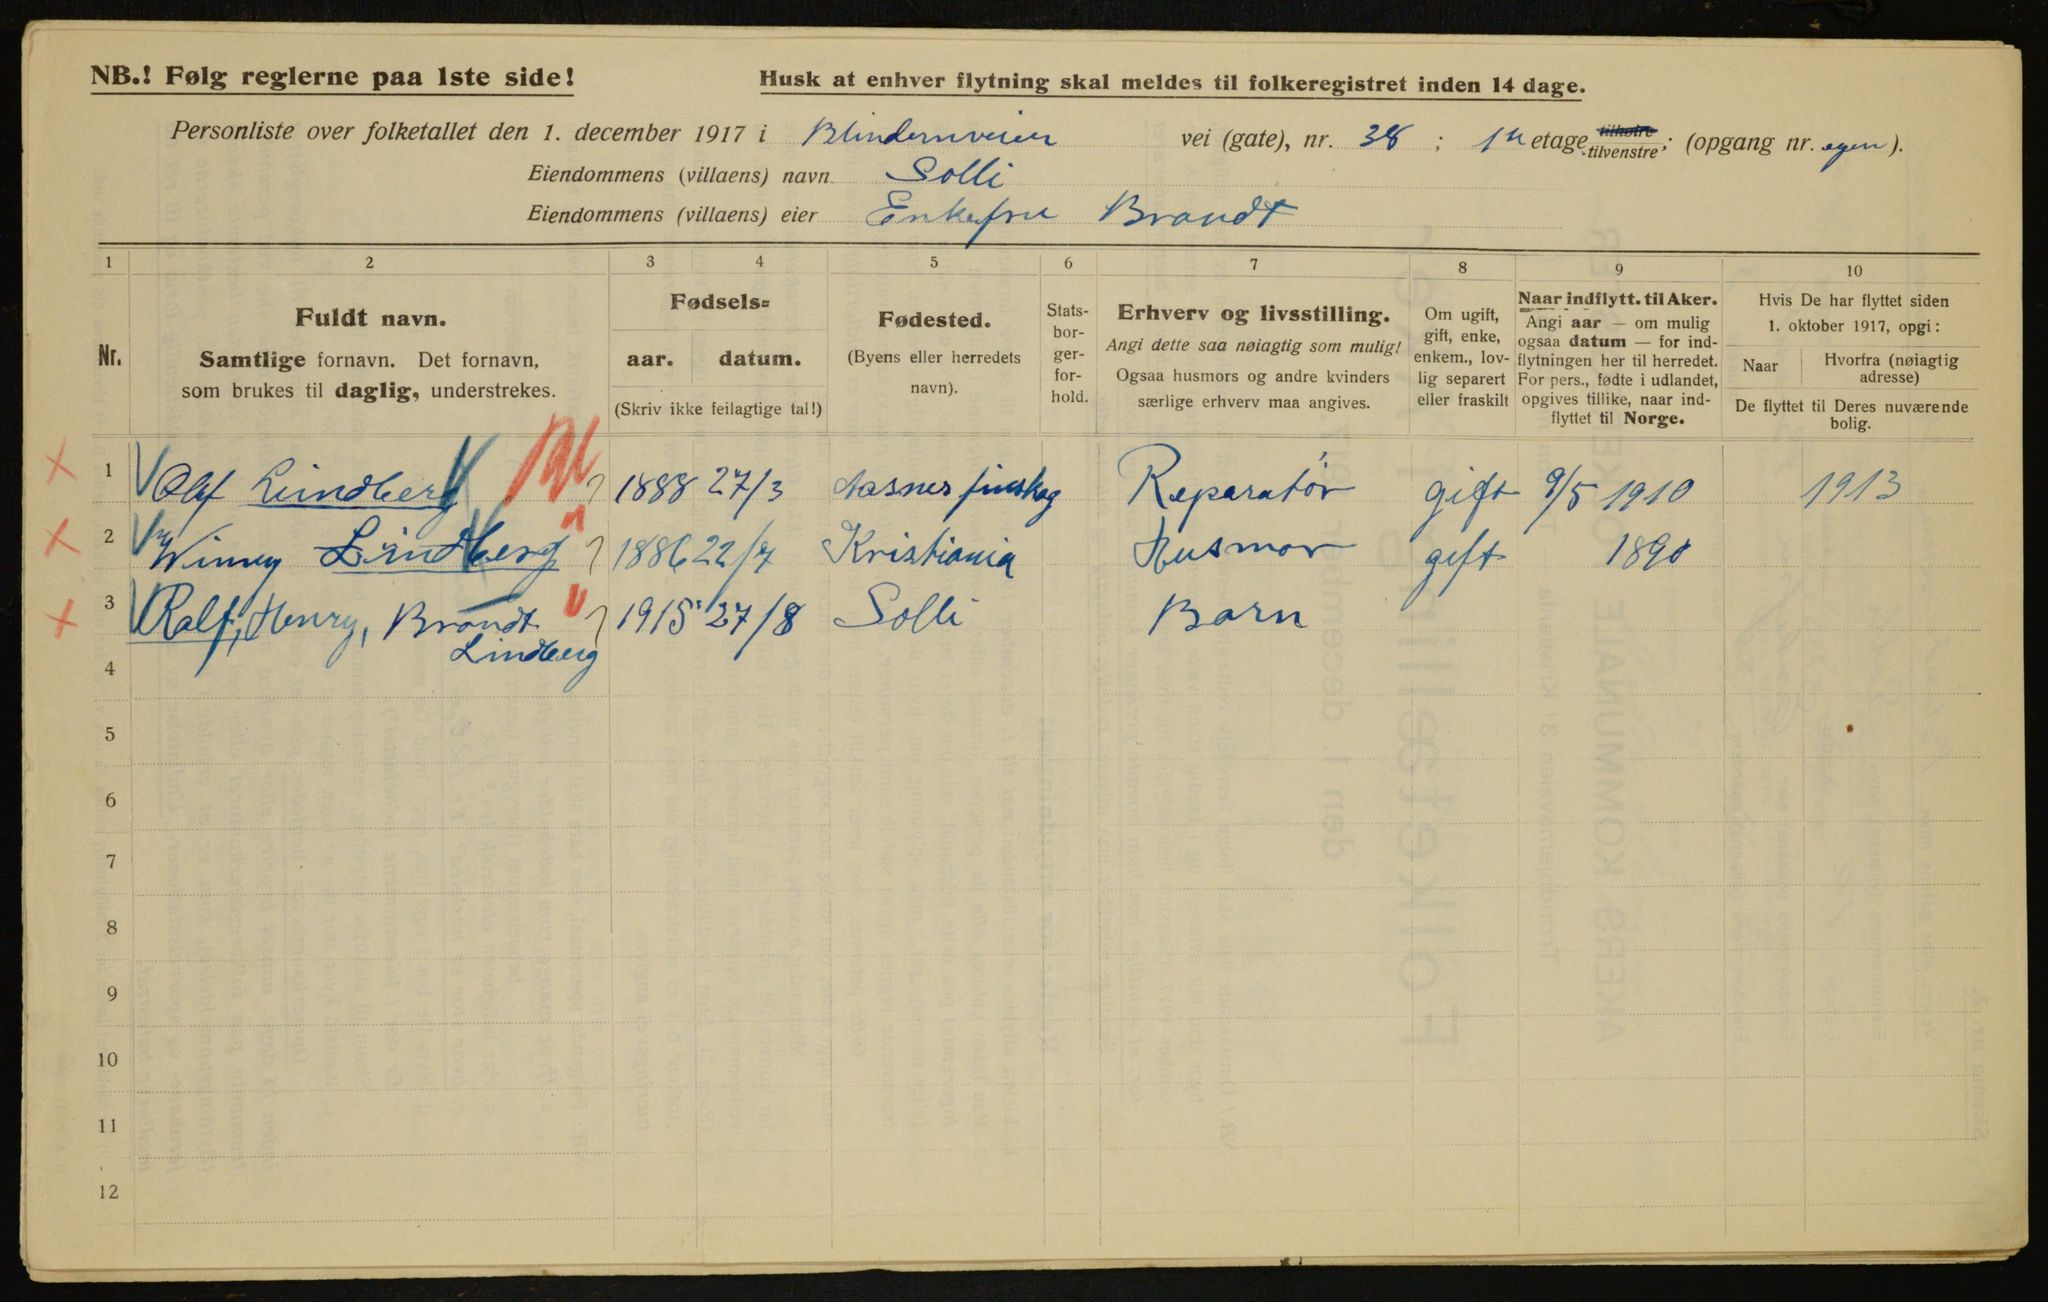 NB.! Følg reglerne paa 1ste side!
Husk at enhver flytning skal meldes til folkeregistret inden 14 dage.
Personliste over folketallet den 1. december 1917 i Blindernveien vei (gate), nr. 38 ; 1ste etage tilhøire tilvenstre; (opgang nr. egen).
Eiendommens (villaens) navn Solli
Eiendommens (villaens) eier Enkefru Brandt
1 2 3 4 5 6 7 8 9 10
Nr.
Fuldt navn.
Samtlige fornavn. Det fornavn,
som brukes til daglig, understrekes.
Fødsels=
aar. datum.
(Skriv ikke feilagtige tal!)
Fødested.
(Byens eller herredets
navn).
Stats-
bor-
ger-
for-
hold.
Erhverv og livsstilling.
Angi dette saa nøiagtig som mulig!
Ogsaa husmors og andre kvinders
særlige erhverv maa angives.
Om ugift,
gift, enke,
enkem., lov-
lig separert
eller fraskilt
Naar indflytt. til Aker.
Angi aar — om mulig
ogsaa datum — for ind-
flytningen her til herredet.
For pers., fødte i udlandet,
opgives tillike, naar ind-
flyttet til Norge.
Hvis De har flyttet siden
1. oktober 1917, opgi:
Naar
Hvorfra (nøiagtig
adresse)
De flyttet til Deres nuværende
bolig.
1 Olaf Lindberg 1888 27/3 Aasnes finskog Reparatør gift 9/5 1910 1913
2 Winny Lindberg 1886 22/7 Kristiania Husmor gift 1890
3 Ralf, Henry, Brandt 1915 27/8 Solli Barn
Lindberg
4
5
6
7
8
9
10
11
12